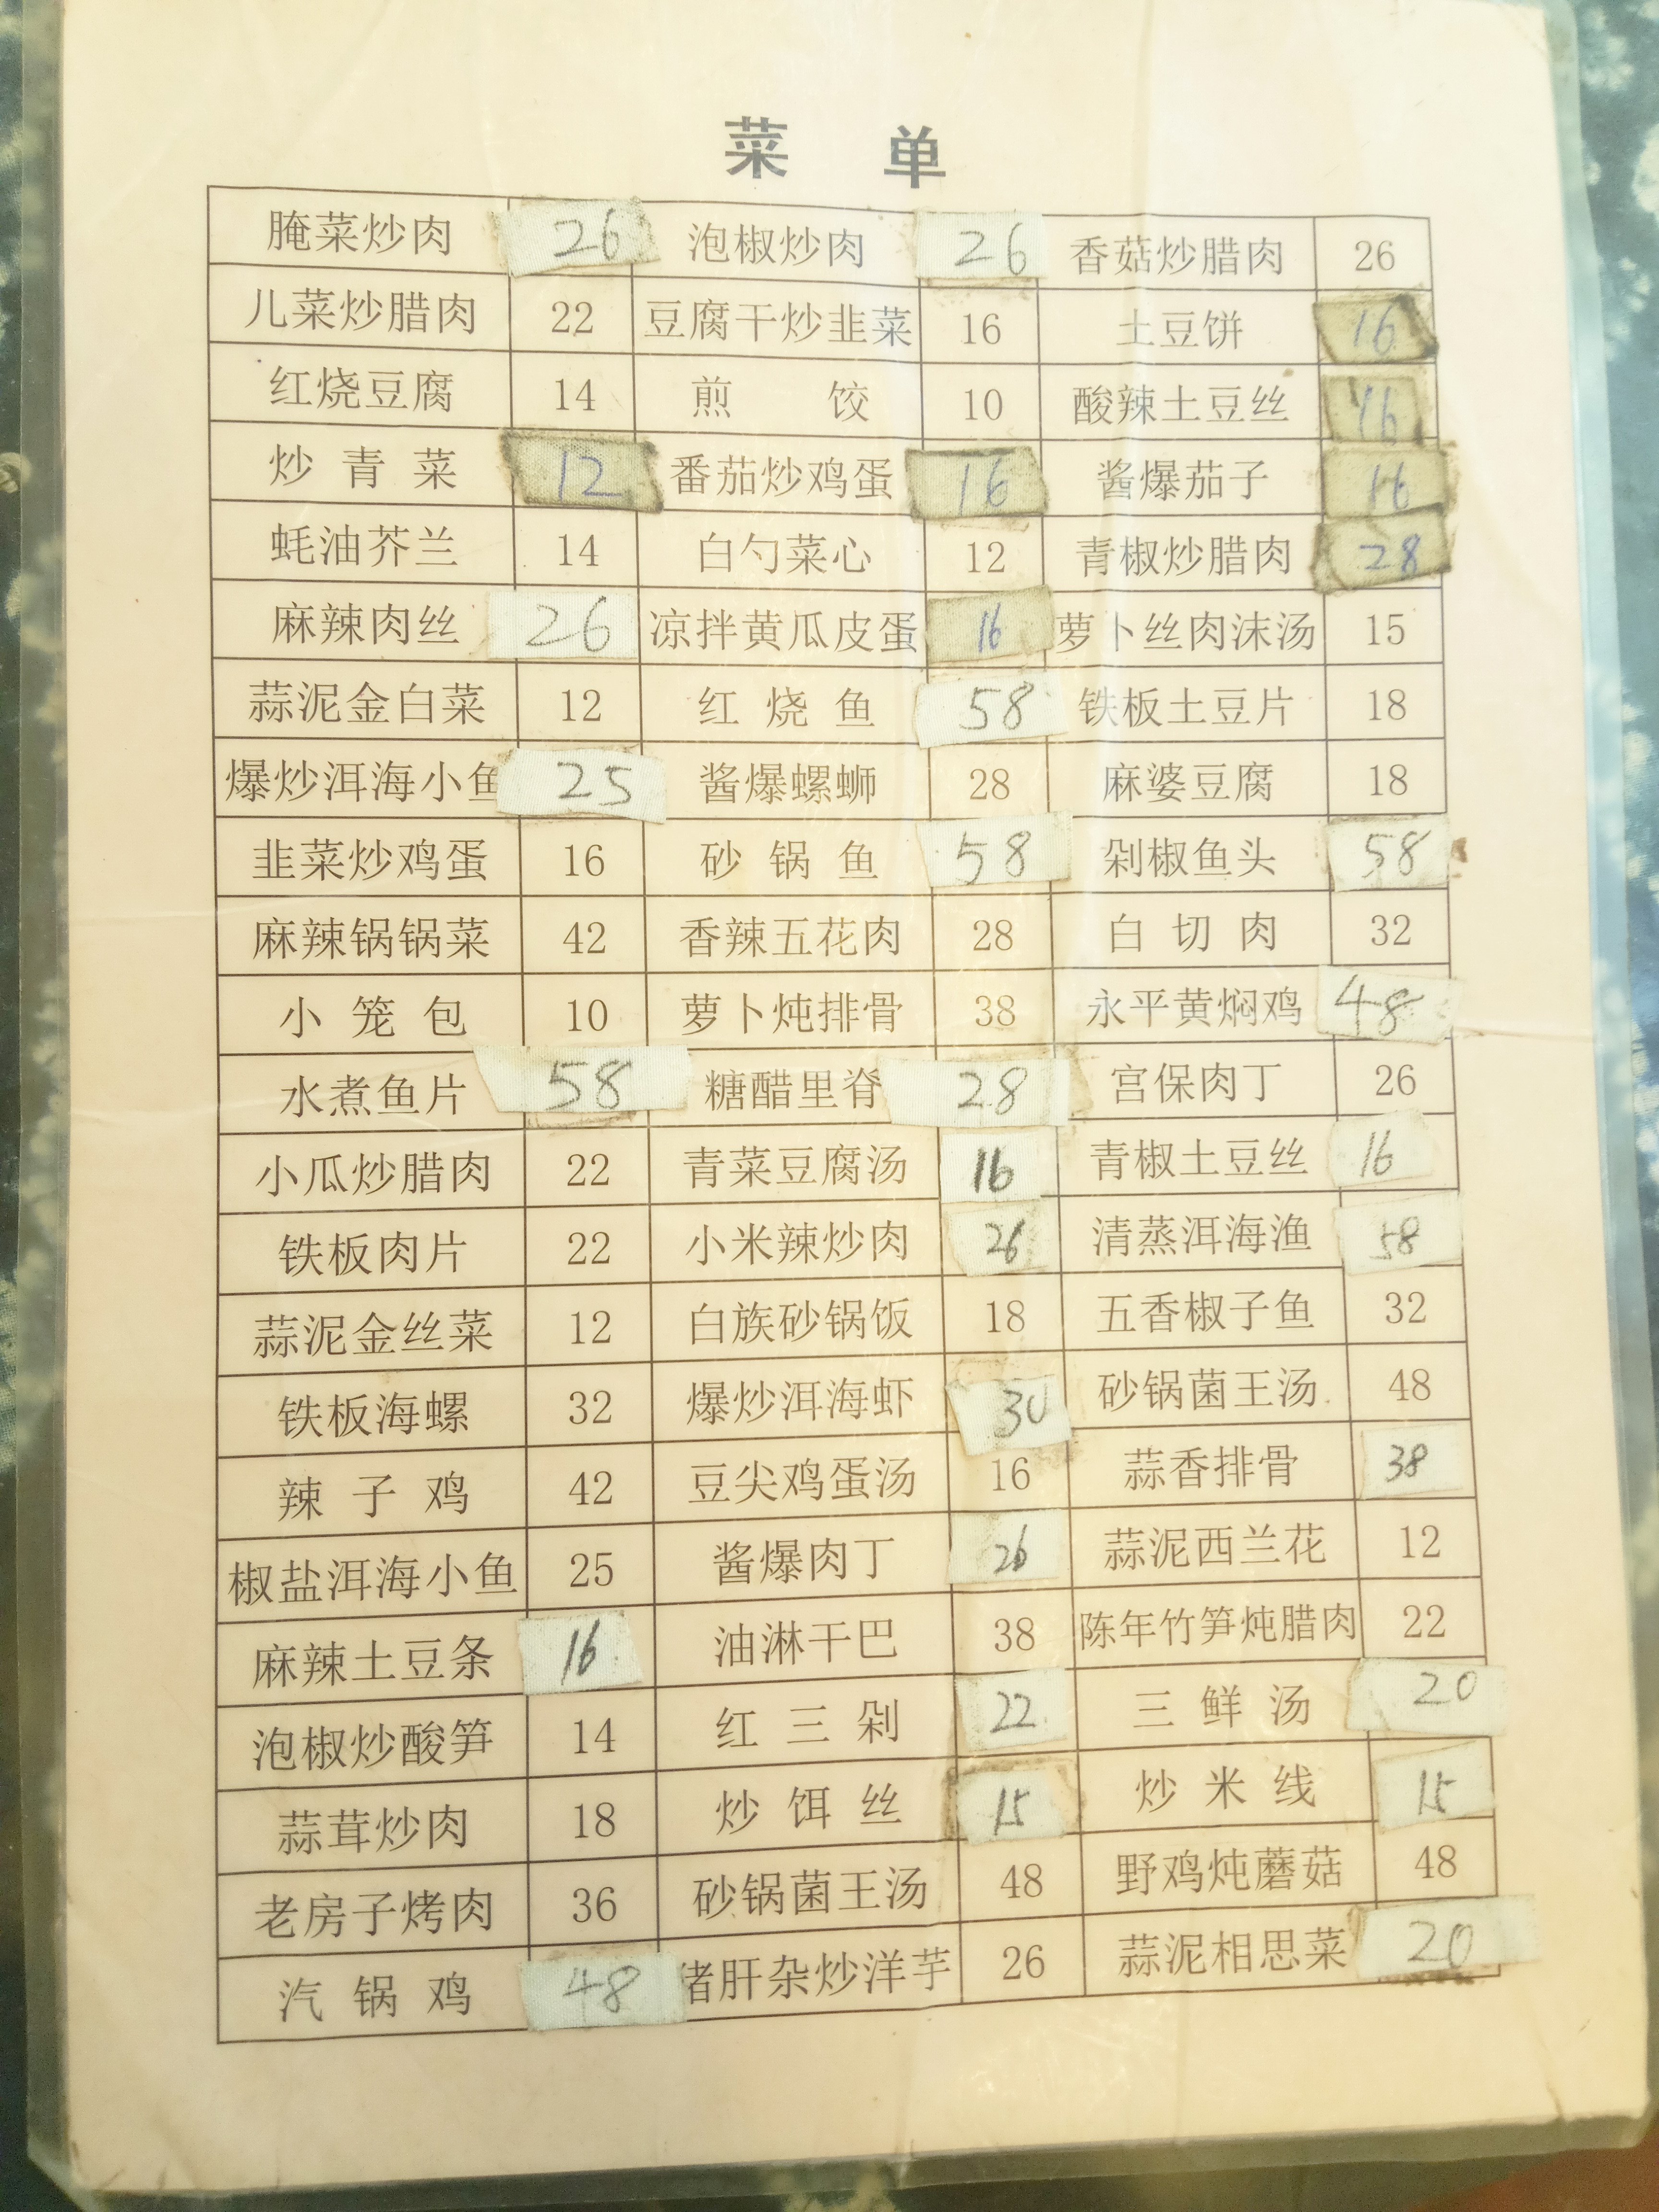 菜 单
腌菜炒肉 26 泡椒炒肉 26 香菇炒腊肉 26
儿菜炒腊肉 22 豆腐干炒韭菜 16 土豆饼 16
红烧豆腐 14 煎 饺 10 酸辣土豆丝 16
炒青菜 12 番茄炒鸡蛋 16 酱爆茄子 16
蚝油芥兰 14 白勺菜心 12 青椒炒腊肉 28
麻辣肉丝 26 凉拌黄瓜皮蛋 16 萝卜丝肉沫汤 15
蒜泥金白菜 12 红烧鱼 58 铁板土豆片 18
爆炒洱海小鱼 25 酱爆螺蛳 28 麻婆豆腐 18
韭菜炒鸡蛋 16 砂锅鱼 58 剁椒鱼头 58
麻辣锅锅菜 42 香辣五花肉 28 白切肉 32
小笼包 10 萝卜炖排骨 38 永平黄焖鸡 48
水煮鱼片 58 糖醋里脊 28 宫保肉丁 26
小瓜炒腊肉 22 青菜豆腐汤 16 青椒土豆丝 16
铁板肉片 22 小米辣炒肉 26 清蒸洱海渔 58
蒜泥金丝菜 12 白族砂锅饭 18 五香椒子鱼 32
铁板海螺 32 爆炒洱海虾 30 砂锅菌王汤 48
辣子鸡 42 豆尖鸡蛋汤 16 蒜香排骨 38
椒盐洱海小鱼 25 酱爆肉丁 26 蒜泥西兰花 12
麻辣土豆条 16 油淋干巴 38 陈年竹笋炖腊肉 22
泡椒炒酸笋 14 红三剁 22 三鲜汤 20
蒜茸炒肉 18 炒饵丝 15 炒米线 15
老房子烤肉 36 砂锅菌王汤 48 野鸡炖蘑菇 48
汽锅鸡 48 猪肝杂炒洋芋 26 蒜泥相思菜 20